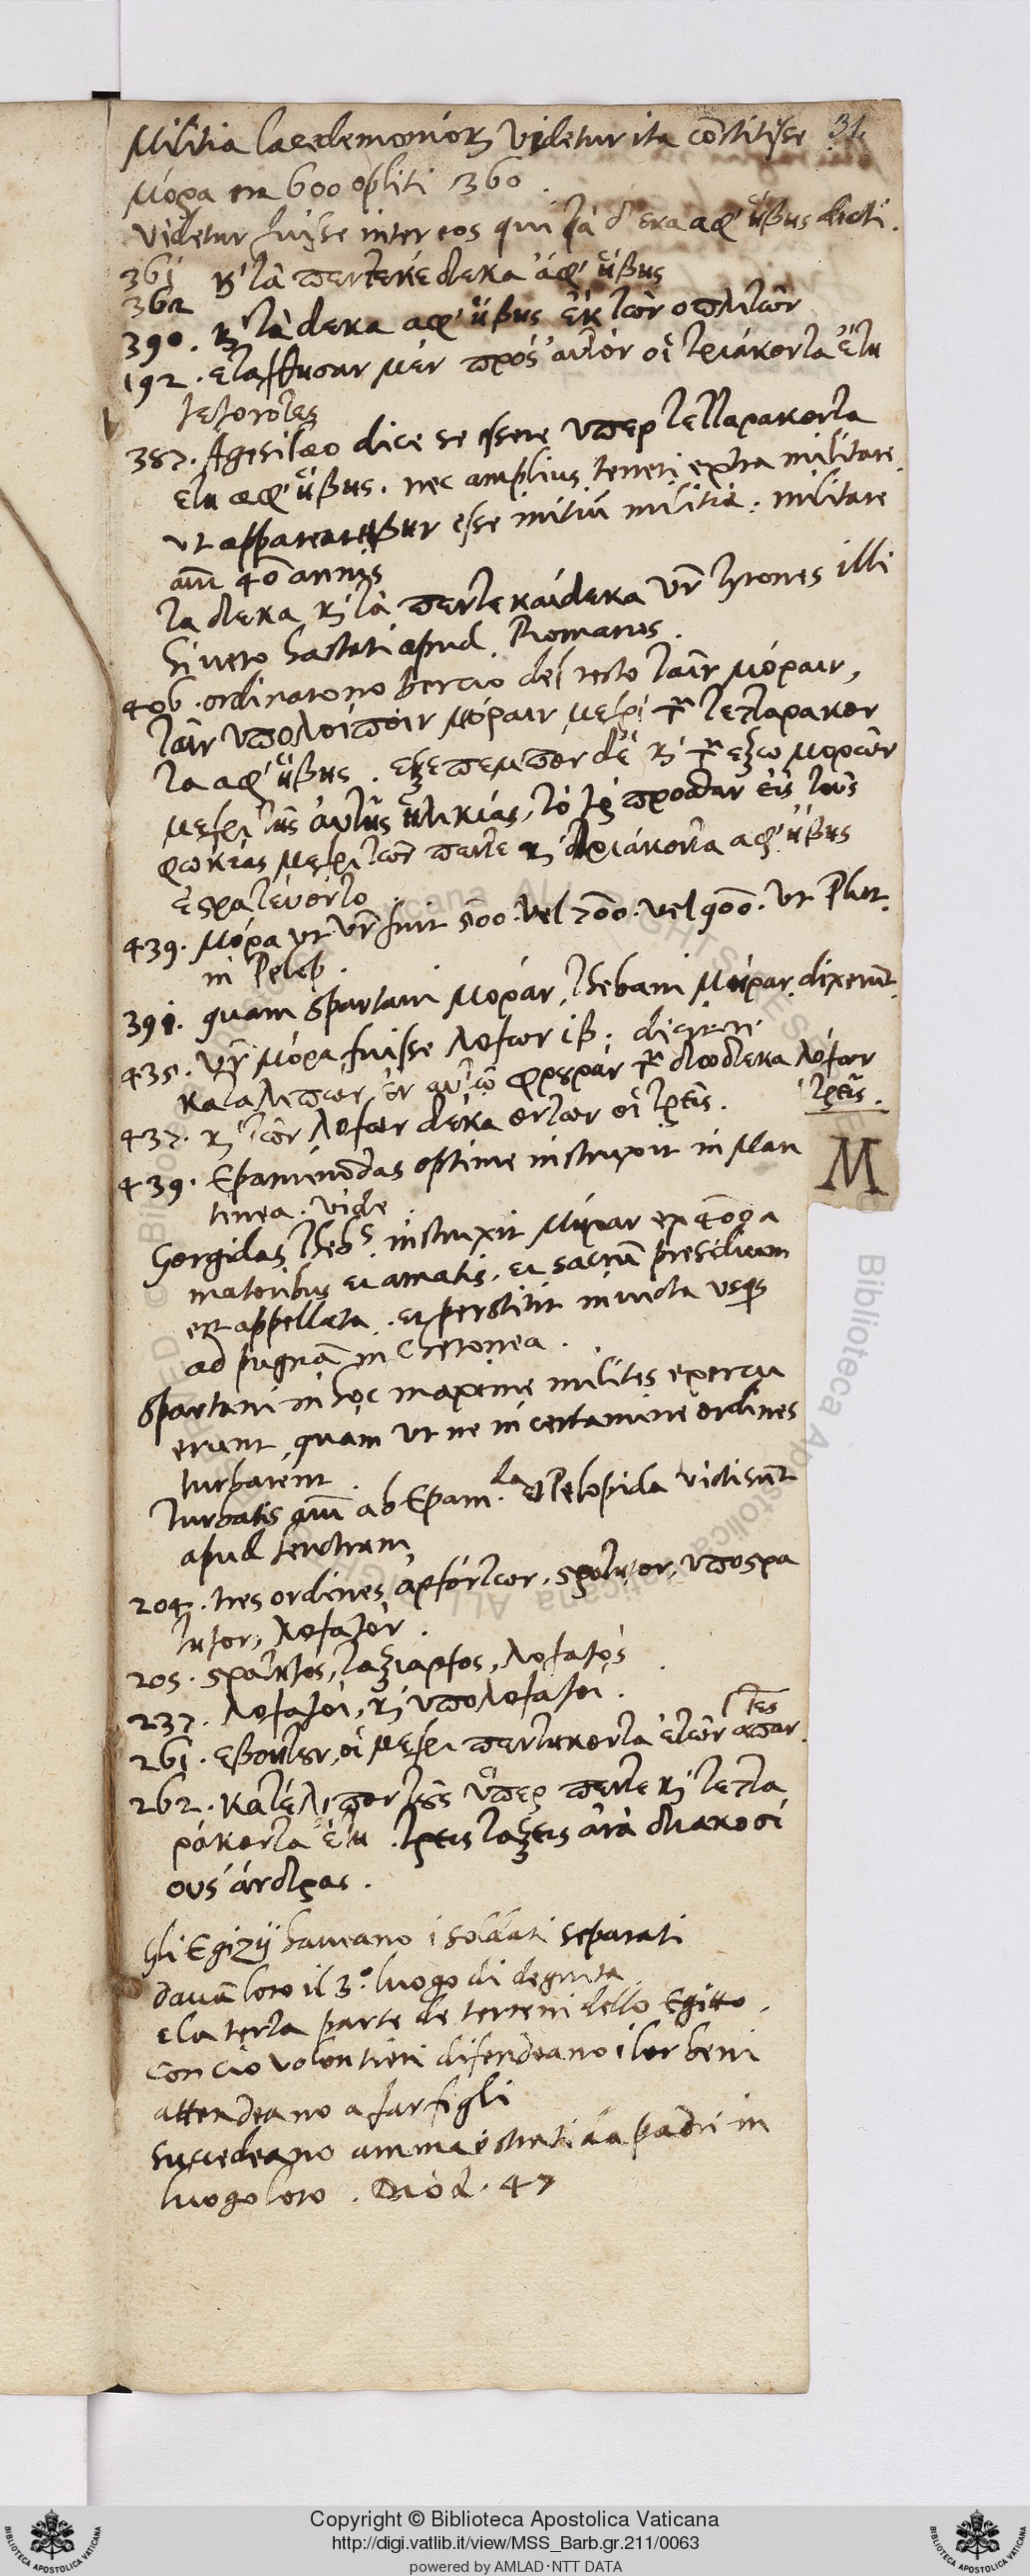 Militia lacedemonior Videtur ita constitisse 31
μόρα ex 600 opliti 360.
Videtur fuisse inter eos qui τὰ δέκα ἀφ' ἥβης dicti.
361 κ τὰ πεντεκαίδεκα ἀφ' ἥβης
362
390. κ τὰ δέκα ἀφ' ἥβης ἐκ τῶν ὁπλιτῶν
192. ἐτάχθησαν μὲν πρὸς αὐτὸν οἱ τριάκοντα ἔτη
γεγονότες
387. Agesilao dice se essere ὑπὲρ τετταράκοντα
ἔτη ἀφ' ἥβης. nec amplius teneri extra militare.
ut appareat ἥβην esse initiū militiæ: militare
aūt 40 annis
τὰ δέκα κ τὰ πεντεκαίδεκα Vr tyrones illi
si uero hastati apud Romanos.
406. ordinarono del resto ταῖν μόραιν,
ταῖν ὑπολοίποιν μόραιν μέχρι τῶν τετταράκον
τα ἀφ' ἥβης. ἐξέπεμπον δὲ κ τῶν ἔξω μορῶν
μέχρι τῆς αὐτῆς ἡλικίας, τὸ γὰρ πρόσθεν εἰς τοὺς
φωκέας μέχρι τῶν πέντε κ τριάκοντα ἀφ' ἥβης
ἐστρατεύοντο
439. μόρα ut Vr fuit 500. vel 700. vel 900. Ut Plut.
in Pelop.
391. quam Spartani μόραν, Thebani dixerunt
435. Vr μόρα fuisse λόχων ιβ.
καταλιπὼν ἐν αὐτῷ φρουρὰν τῶν δώδεκα λόχων
τρεῖς.
437. κ τῶν λόχων δέκα ὄντων οἱ τρεῖς.
439. Epaminōdas optime instruxit in Man
tinea. vide
M
Gorgidas Thebs. instruxit ex 400 a
matoribus et amatis. et sacrū presidium
est appellata. et perstitit inuicta usq
ad pugnā in Cheronea.
Spartani in hoc maxime milites exercu
erunt quam ut ne in certamine ordines
turbarent.
Turbatis aūt ab Epam.da et Pelopida victi sūt
apud leuctram
204. tres ordines, ἀρχόντων. στρατηγὸν, ὑποστρα
τηγον, λοχαγόν.
205. στρατηγὸς, ταξίαρχος, λοχαγός.
237. λοχαγοὶ, κ ὑπολοχαγοι.
261. ἐβοήθουν, οἱ μέχρι πεντήκοντα ἐτῶν ἅπαν
τες
262. κατέλιπον τοὺς ὑπὲρ πέντε κ τεττα
ράκοντα ἔτη. τρεῖς τάξεις ἀνὰ διακοσί
ους ἄνδρας.
Gli Egizij haueano i soldati separati
dauā loro il 3.º luogo di degnita
e la terza parte de terreni dello Egitto.
con cio volontieri difendeano i lor beni
attendeano a far figli
succedeano ammaestrati da padri in
luogo loro. Diod. 47
Copyright © Biblioteca Apostolica Vaticana
http://digi.vatlib.it/view/MSS_Barb.gr.211/0063
powered by AMLAD·NTT DATA